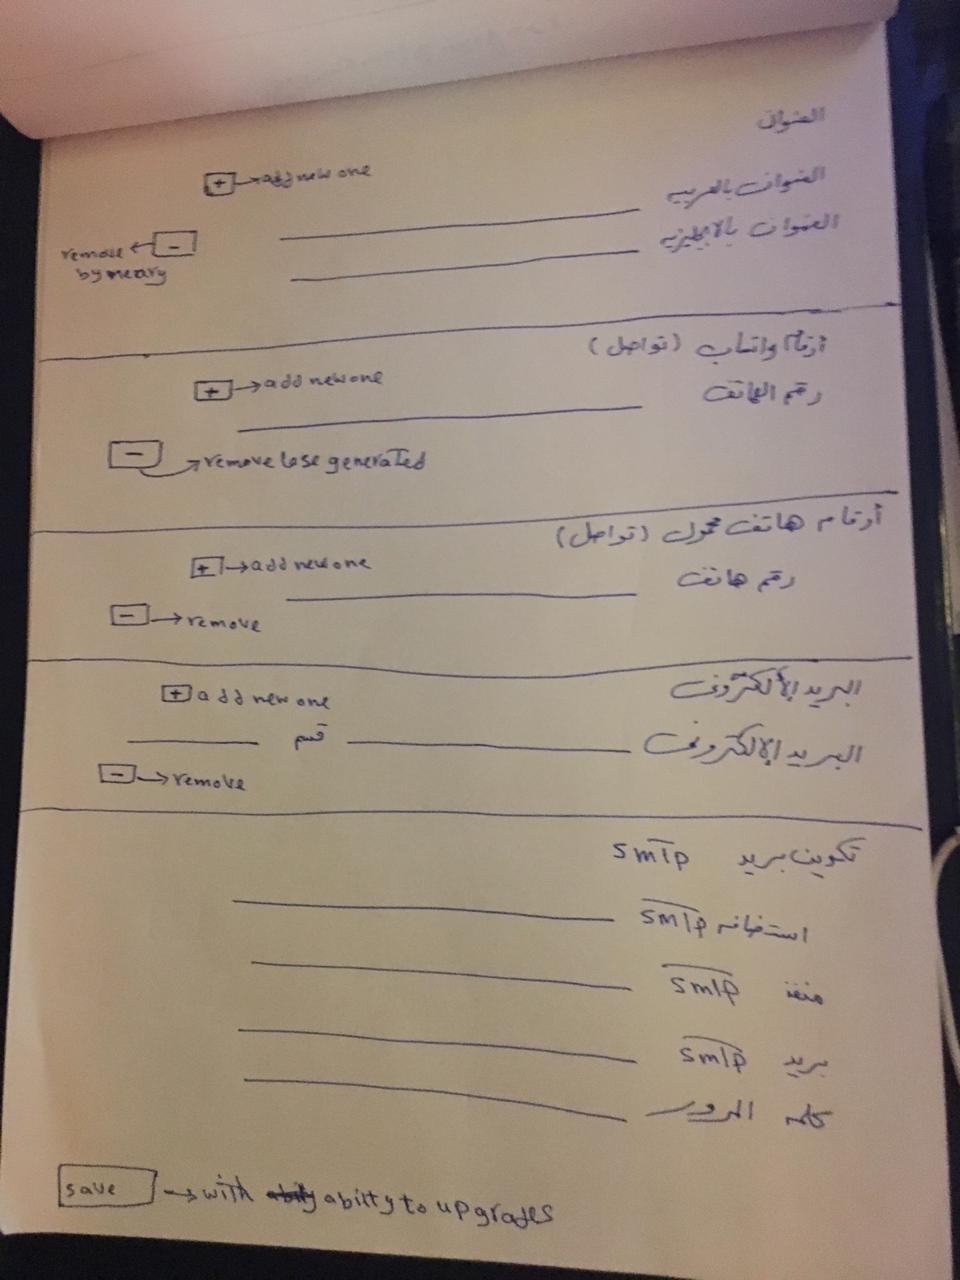 العنوان
+ → add new one
العنوان بالعربيه
العنوان بالانجليزيه
remove ← -
by
أرقام واتساب (تواصل)
+ → add new one
رقم الهاتف
- → remove lose generated
أرقام هاتف محمول (تواصل)
+ → add new one
رقم هاتف
- → remove
البريد الألكترونى
+ add new one
البريد الإلكترونى قسم
- → remove
تكوين بريد smtp
استضافه smtp
منفذ smtp
بريد smtp
كلمه المرور
save → with abilty to upgrades